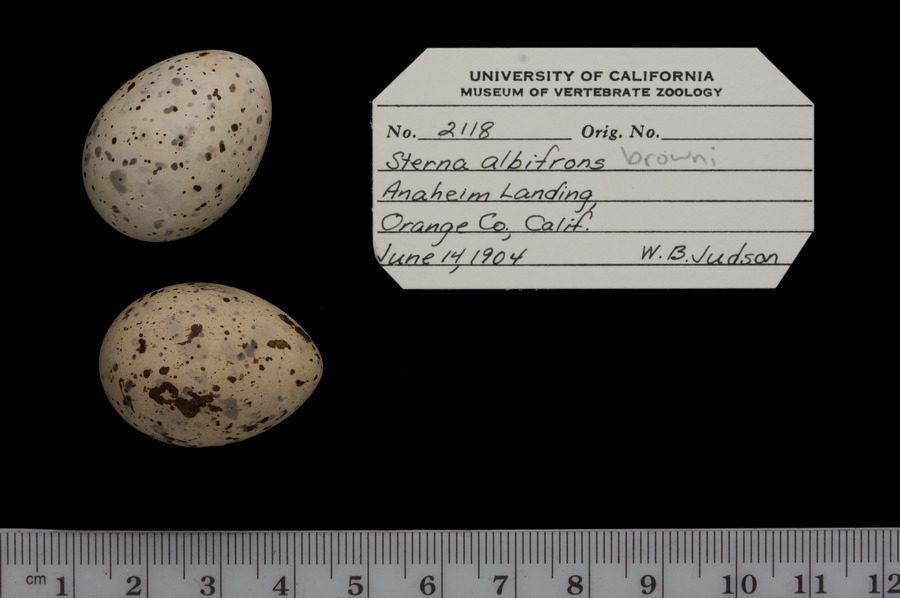 UNIVERSITY OF CALIFORNIA
MUSEUM OF VERTEBRATE ZOOLOGY
No. 2118 Orig. No.
Sterna albifrons browni
Anaheim Landing,
Orange Co., Calif.
June 14, 1904 W. B. Judson
cm 1 2 3 4 5 6 7 8 9 10 11 12